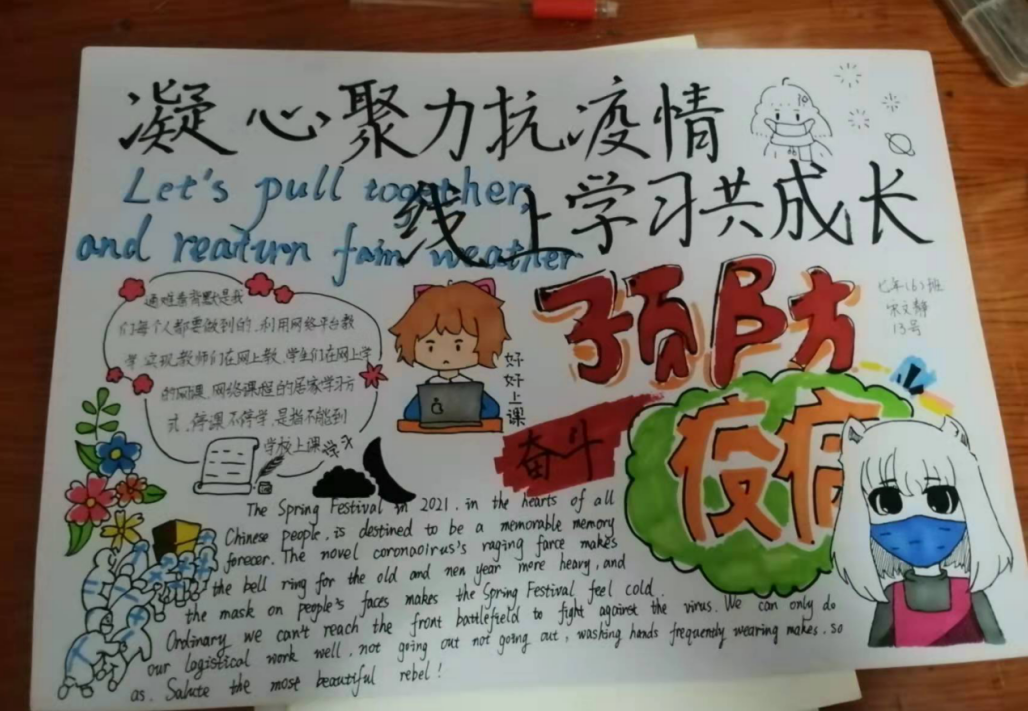 凝心聚力抗疫情
Let's pull together,
线上学习共成长
and reaturn fain weather
预防
七年(6)班
宋文静
13号
遇难
默是我
们每个人都要做到的、利用网络平台教
学实现教师们在网上教、学生们在网上学
的网课、网络课程的居家学习方
式、停课不停学、是指不能到
学校上课学习
好好上课
奋斗
疫病
The Spring Festival in 2021. in the hearts of all
Chinese people, is destined to be a memorable memory
forecer. The novel coronaoirus's raging farce makes
the bell ring for the old and nen year more heary, and
the mask on people's faces makes the Spring Festival feel cold.
Ordinary we can't reach the front battlefield to fight against the virus. We can only do
our logistical work well, not going out not going out, washing hands frequently wearing makes. so
as. Salute the most beautiful rebel!